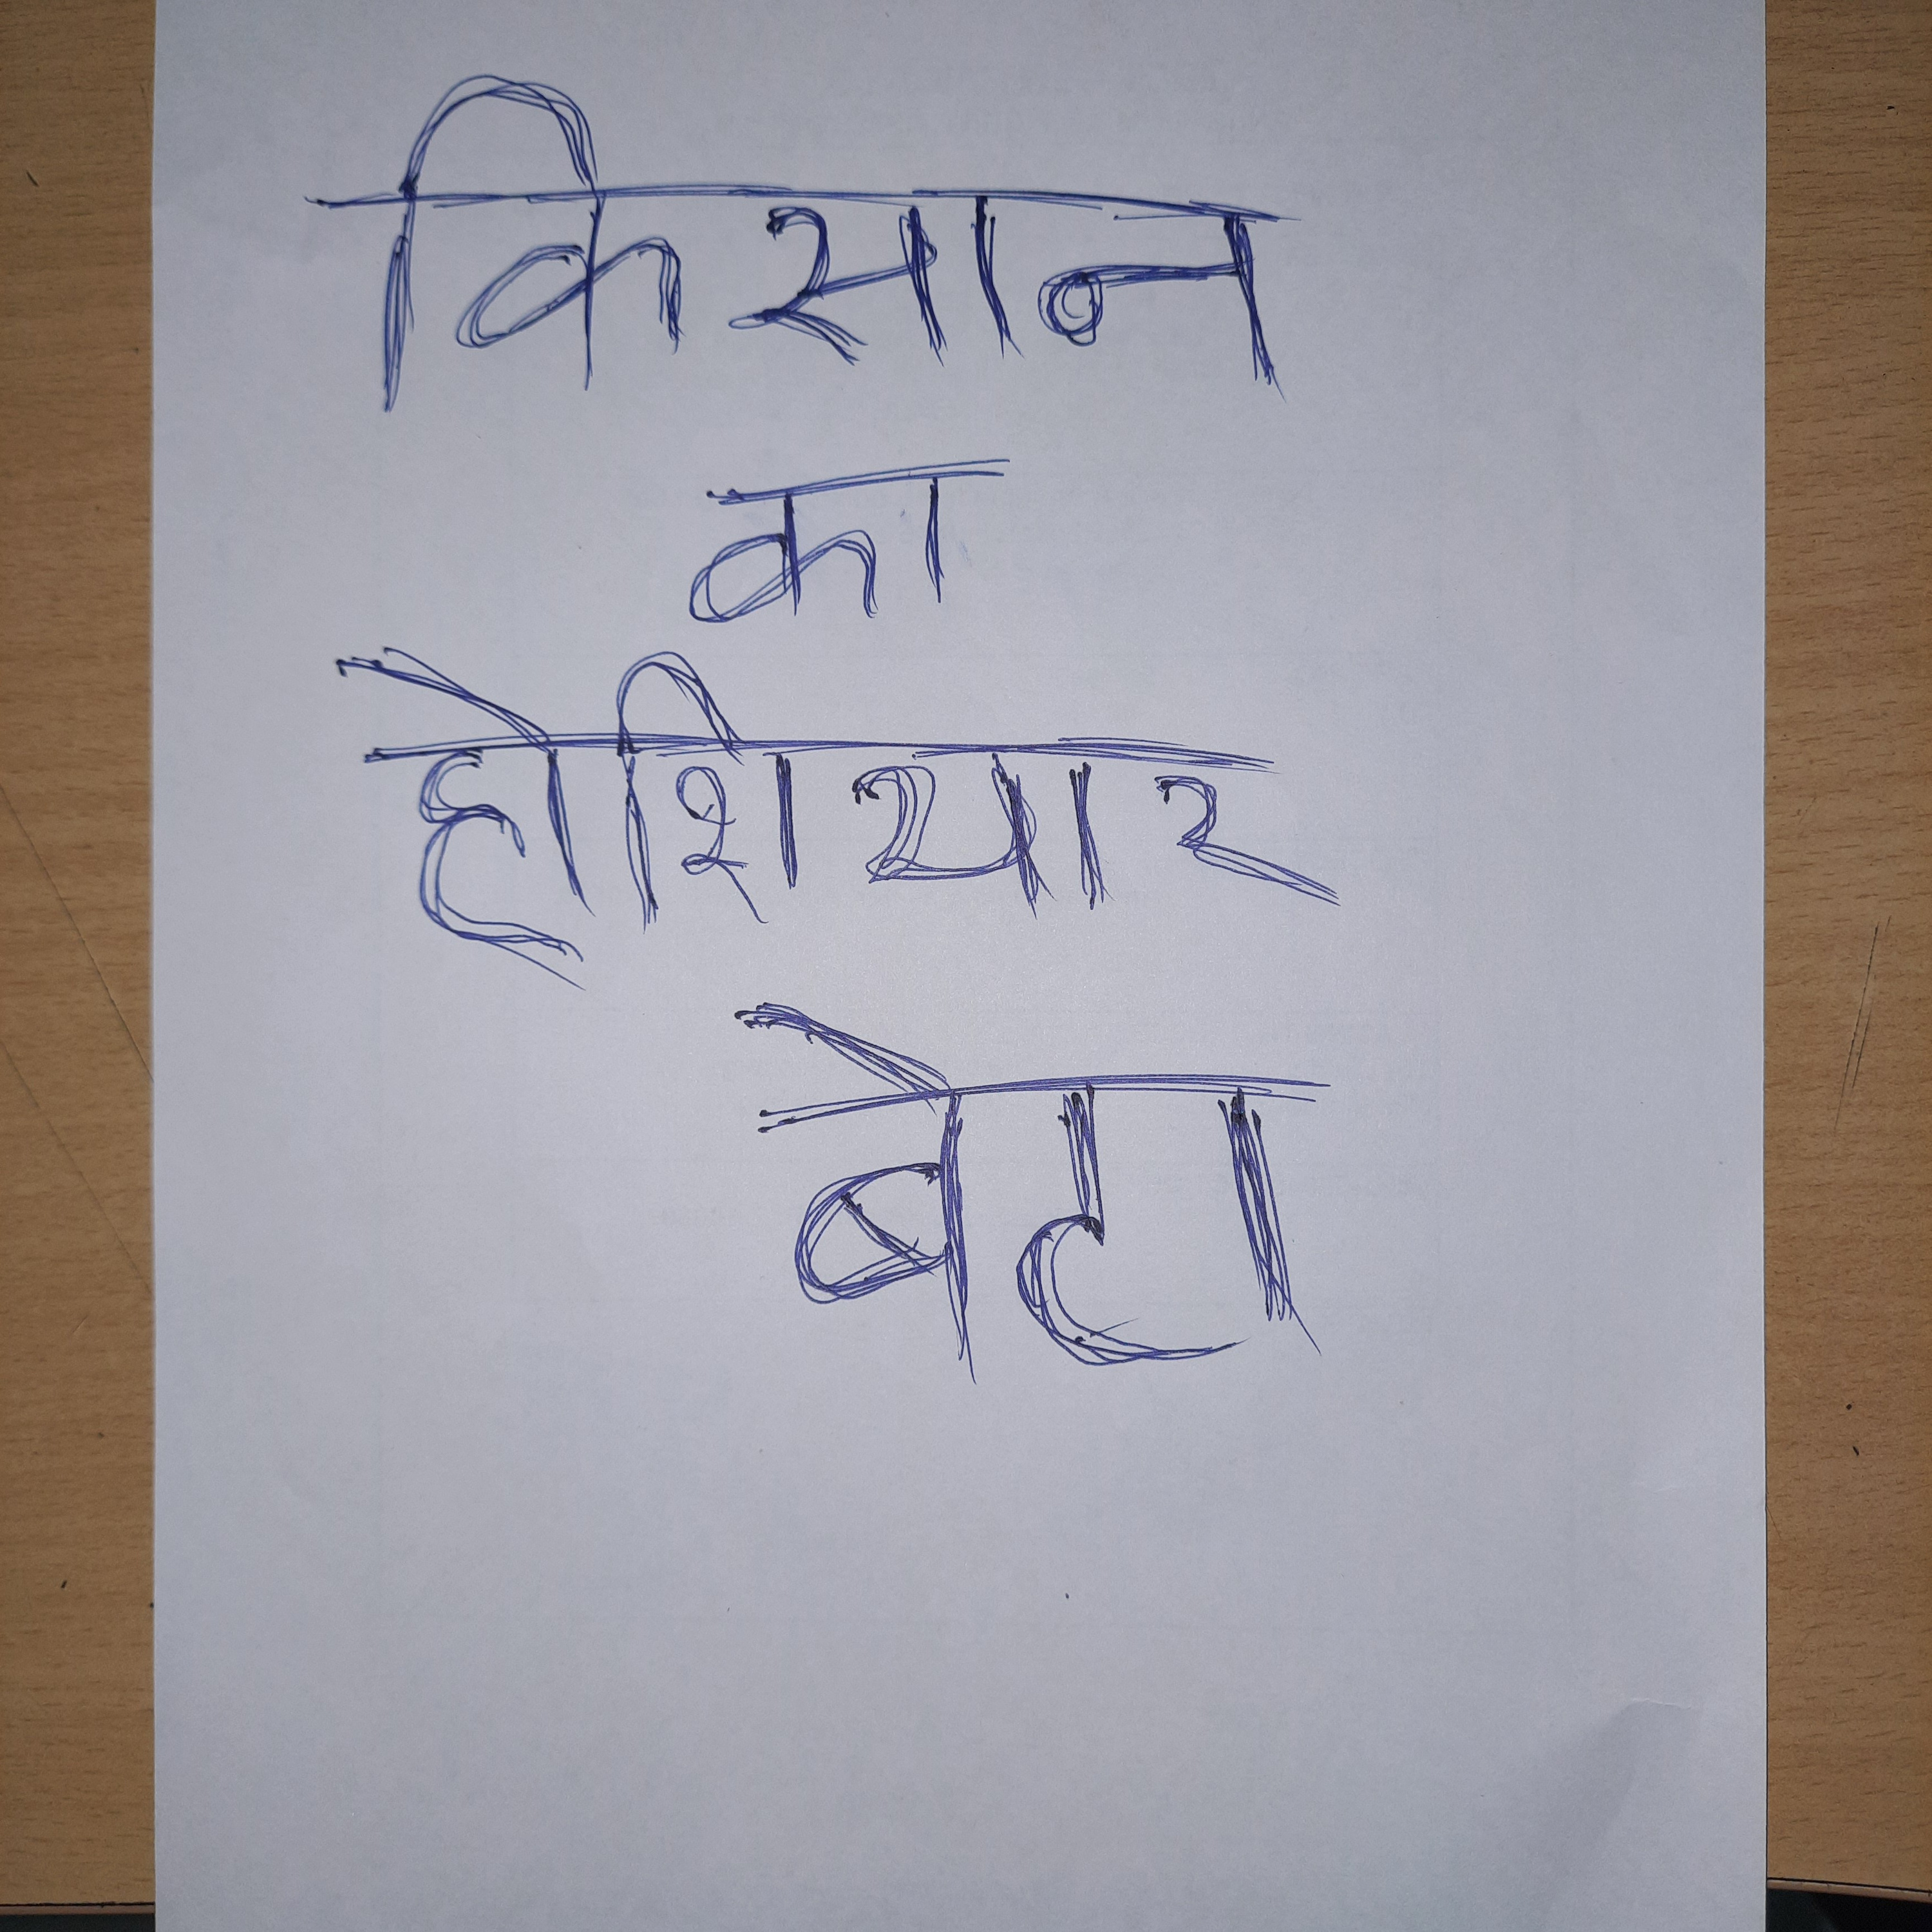 किसान
का
होशियार
बेटा